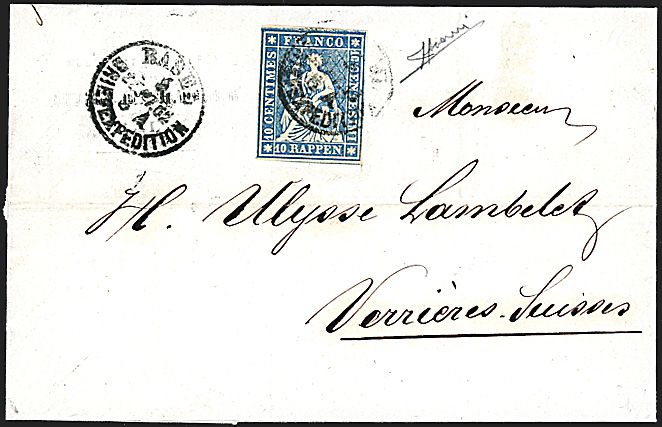 BASEL
BRIEFEXPEDITION
FRANCO
10 CENTIMES
10 CENTESIMI
10 RAPPEN
Monsieur
H. Ulysse Lambelet
Verrières-Suisses